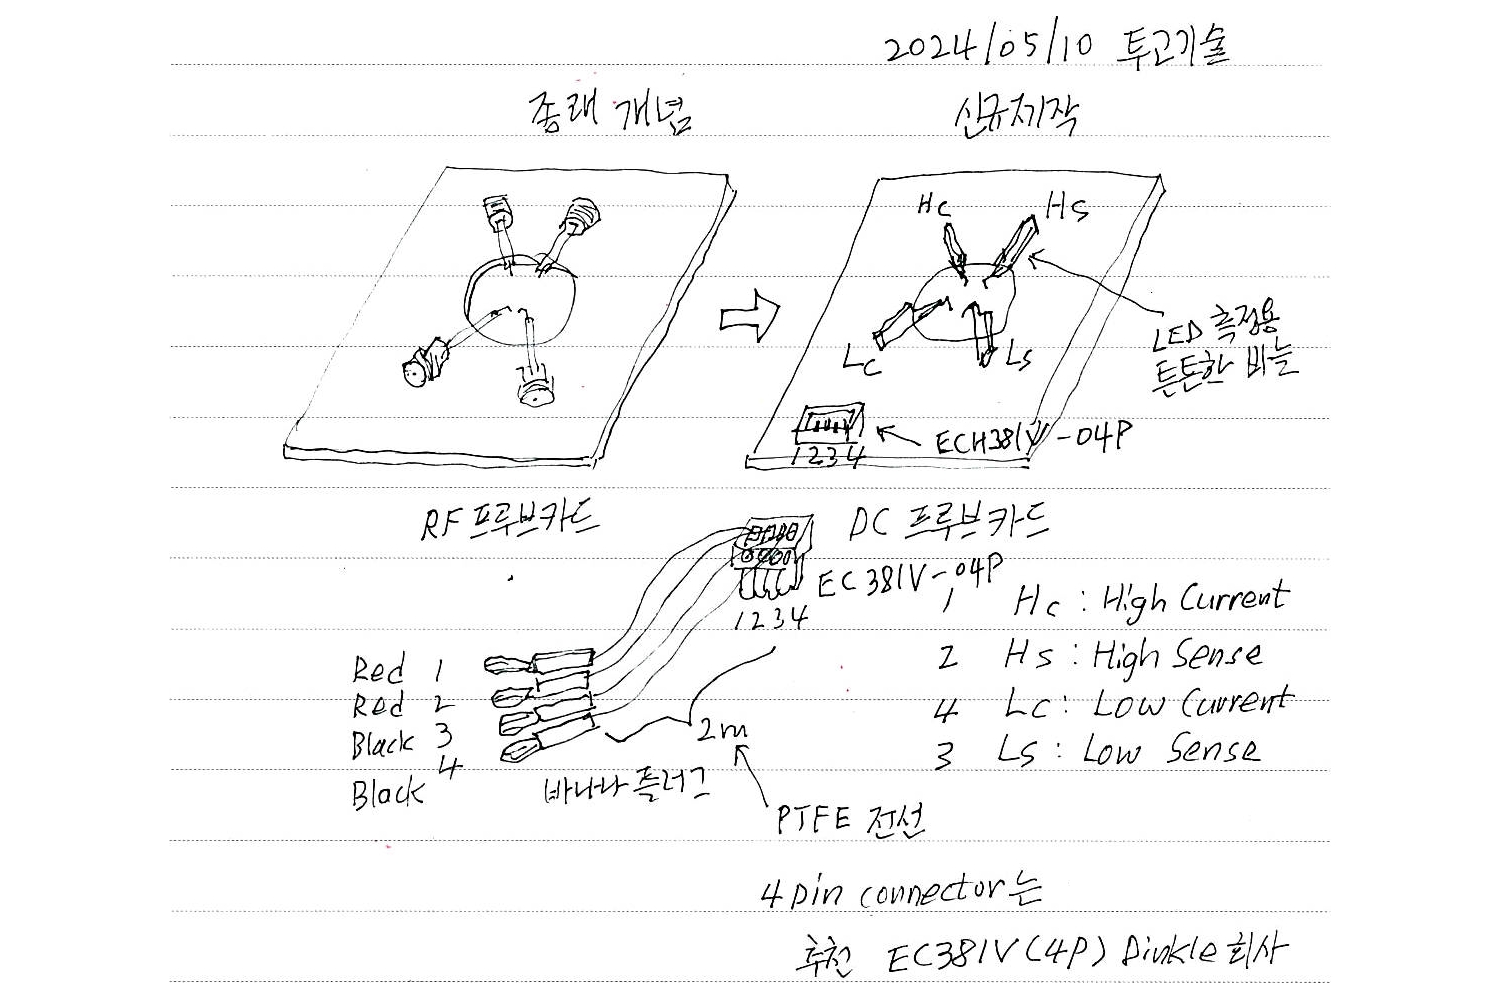 2024/05/10 투고기술
종래 개념
신규제작
Hc
Hs
Lc
Ls
LED 측정용
튼튼한 바늘
ECH381V-04P
1234
RF 프루브카드
DC 프루브카드
EC381V-04P
1234
1 Hc : High Current
2 Hs : High Sense
4 Lc : Low Current
3 Ls : Low Sense
Red 1
Red 2
Black 3
Black 4
바나나 플러그
2m
PTFE 전선
4pin connector는
추천 EC381V(4P) Dinkle 회사